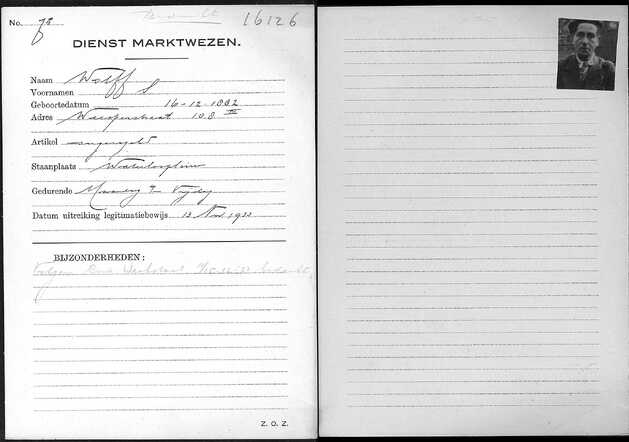 16126
No. 78
DIENST MARKTWEZEN.
Naam Wolff
Voornamen S
Geboortedatum 16-12-1882
Adres Weesperstraat 108 III
Artikel ongeregeld
Staanplaats Waterlooplein
Gedurende Maandag t/m Vrijdag
Datum uitreiking legitimatiebewijs 13 Nov 1933
BIJZONDERHEDEN:
Volgens
Z. O. Z.